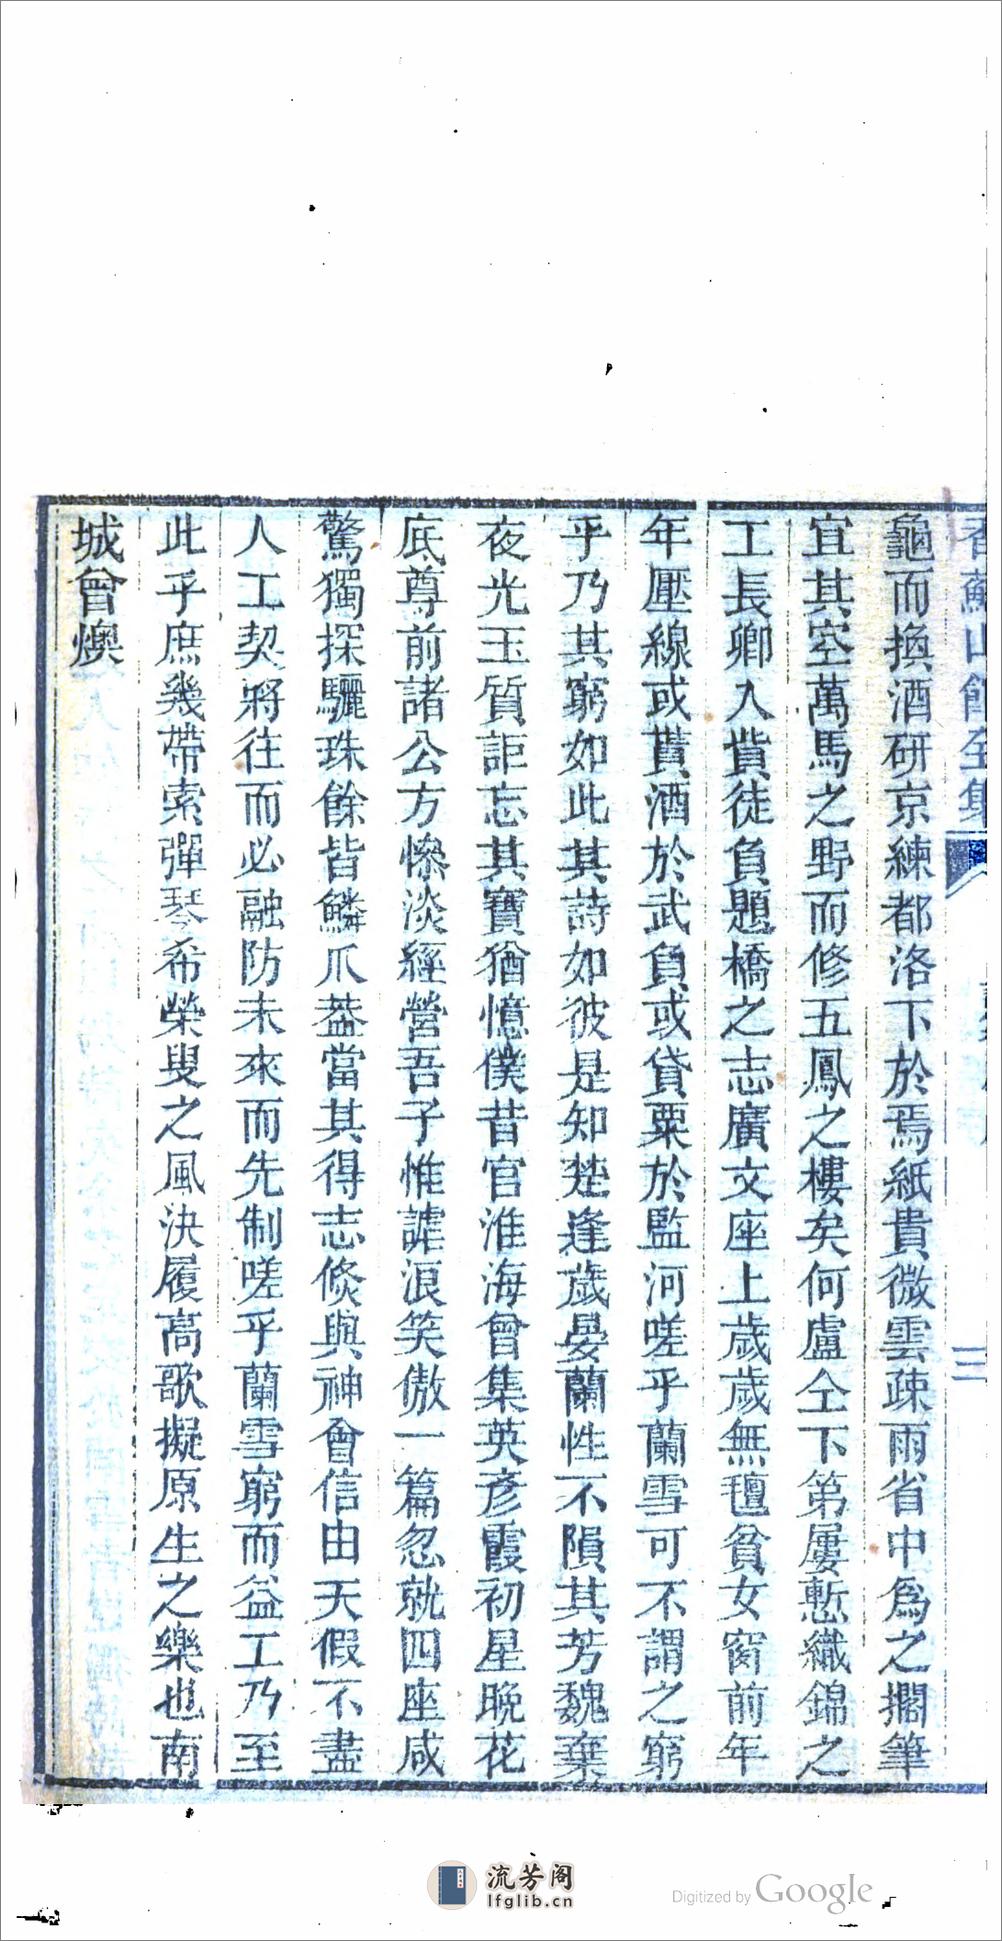 香蘇山館全集
三
龜而換酒研京練都洛下於焉紙貴微雲疎雨省中爲之擱筆
宜其空萬馬之野而修五鳳之樓矣何盧仝下第屢慙織錦之
工長卿入貲徒負題橋之志廣文座上歲歲無氊貧女窗前年
年壓線或貰酒於武負或貸粟於監河嗟乎蘭雪可不謂之窮
乎乃其窮如此其詩如彼是知楚逢歲晏蘭性不隕其芳魏棄
夜光玉質詎忘其寶猶憶僕昔官淮海曾集英彥霞初星晚花
底尊前諸公方慘淡經營吾子惟謔浪笑傲一篇忽就四座咸
驚獨探驪珠餘皆鱗爪葢當其得志倏與神會信由天假不盡
人工契將往而必融防未來而先制嗟乎蘭雪窮而益工乃至
此乎庶幾帶索彈琴希榮叟之風決履高歌擬原生之樂也南
城曾燠
流芳阁
lfglib.cn
Digitized by Google